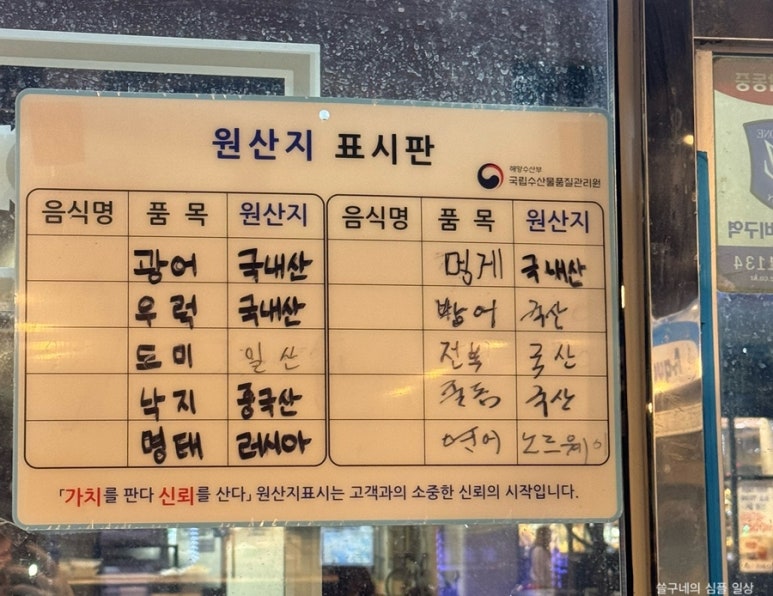 원산지 표시판
해양수산부
국립수산물품질관리원
음식명 품 목 원산지 음식명 품 목 원산지
광어 국내산 멍게 국내산
우럭 국내산 방어 국산
도미 일산 전복 국산
낙지 중국산 국산
명태 러시아 연어 노르웨이
「가치를 판다 신뢰를 산다」 원산지표시는 고객과의 소중한 신뢰의 시작입니다.
1134
쓸구네의 심플 일상